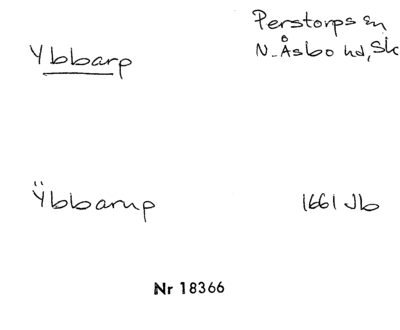 Perstorps sn
Ybbarp
N. Åsbo hd, Sk
Ÿbbarup
1661 Jb
Nr 18366